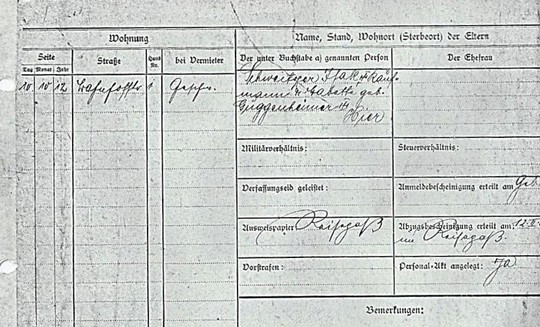 Wohnung
Name, Stand, Wohnort (Sterbeort) der Eltern
Seite
Tag Monat Jahr
Straße
Haus Nr.
bei Vermieter
Der unter Buchstabe a) genannten Person
Der Ehefrau
10 10 12
1
Schweitzer Isak Kauf-
mann
Babette geb.
Guggenheimer
Hier
Militärverhältnis:
Steuerverhältnis:
Verfassungseid geleistet:
Anmeldebescheinigung erteilt am
Ausweispapier Reisepaß
Abzugsbescheinigung erteilt am: 12
Reisepaß
Vorstrafen:
Personal-Akt angelegt: Ja
Bemerkungen: